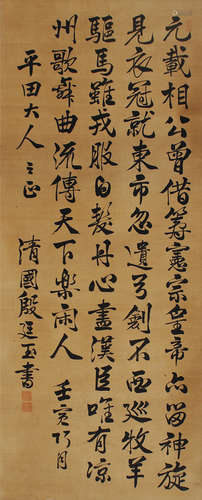 元載相公曾借箸憲宗皇帝亦留神旋
見衣冠就東市忽遺弓劍不西巡牧羊
驅馬雖戎服白髮丹心盡漢臣唯有涼
州歌舞曲流傳天下樂閑人 壬寅巧月
平田大人 之正
清國殷廷玉書